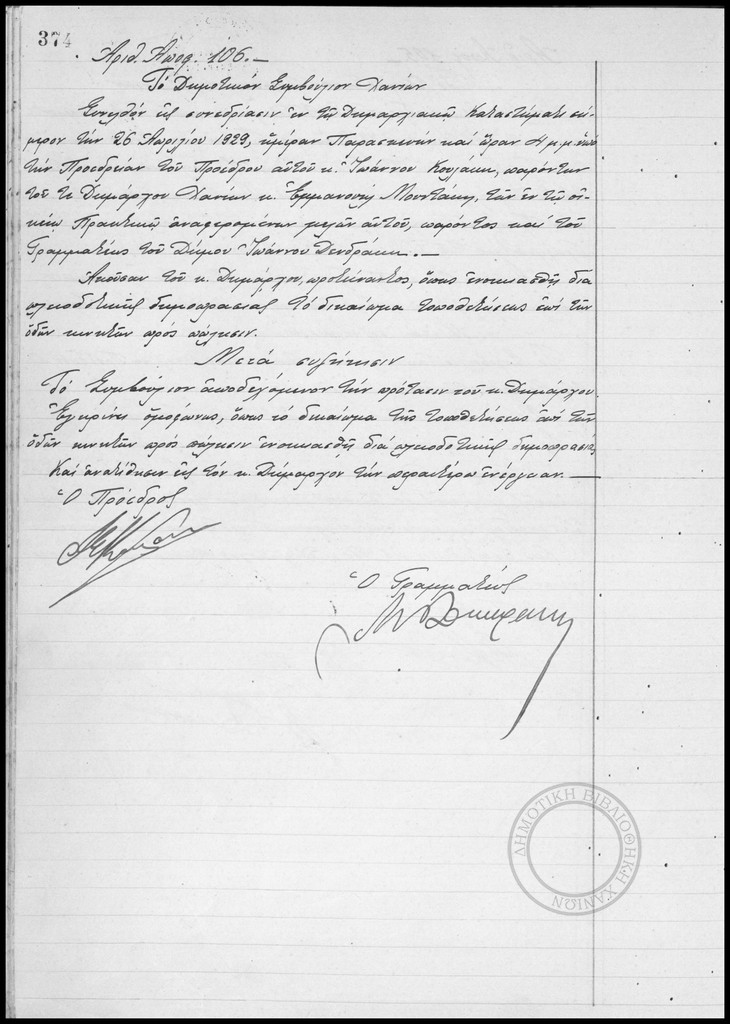 374
Ἀριθ. Ἀποφ. 106.—
Τό Δημοτικόν Συμβούλιον Χανίων
Συνελθόν εἰς συνεδρίασιν ἐν τῷ Δημαρχιακῷ Καταστήματι σή-
μερον τήν 26 Ἀπριλίου 1929, ἡμέραν Παρασκευήν καί ὥραν 4 μ.μ. ὑπό
τήν Προεδρείαν τοῦ Προέδρου αὐτοῦ κ. Ἰωάννου Κουλάκη, παρόντων
τοῦ κ. Δημάρχου Χανίων κ. Ἐμμανουήλ Μουντάκη, τῶν ἐν τῷ οἰ-
κείῳ Πρακτικῷ ἀναφερομένων μελῶν αὐτοῦ, παρόντος καί τοῦ
Γραμματέως τοῦ Δήμου Ἰωάννου Δενδράκη.—
Ἀκοῦσαν τοῦ κ. Δημάρχου, προτείναντος, ὅπως ἐνοικιασθῇ διά
πλειοδοτικῆς δημοπρασίας τό δικαίωμα τοποθετήσεως ἐπί τῶν
ὁδῶν κινητῶν πρός πώλησιν.
Μετά συζήτησιν
Τό Συμβούλιον ἀποδεχόμενον τήν πρότασιν τοῦ κ. Δημάρχου
Ἐγκρίνει ὁμοφώνως, ὅπως τό δικαίωμα τῆς τοποθετήσεως ἐπί τῶν
ὁδῶν κινητῶν πρός πώλησιν ἐνοικιασθῇ διά πλειοδοτικῆς δημοπρασίας
Καί ἀνατίθησιν εἰς τόν κ. Δήμαρχον τήν περαιτέρω ἐνέργειαν.—
Ὁ Πρόεδρος
Ὁ Γραμματεύς
ΔΗΜΟΤΙΚΗ ΒΙΒΛΙΟΘΗΚΗ ΧΑΝΙΩΝ